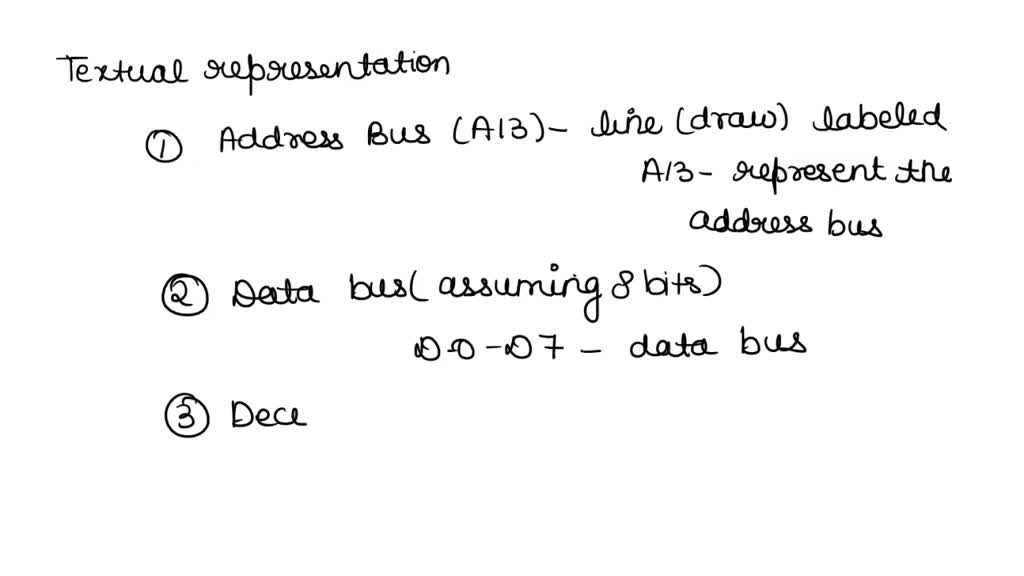 Textual representation
① Address Bus (A13) - line (draw) labeled
A13 - represent the
address bus
② Data bus (assuming 8 bits)
D0-D7 - data bus
③ Dece